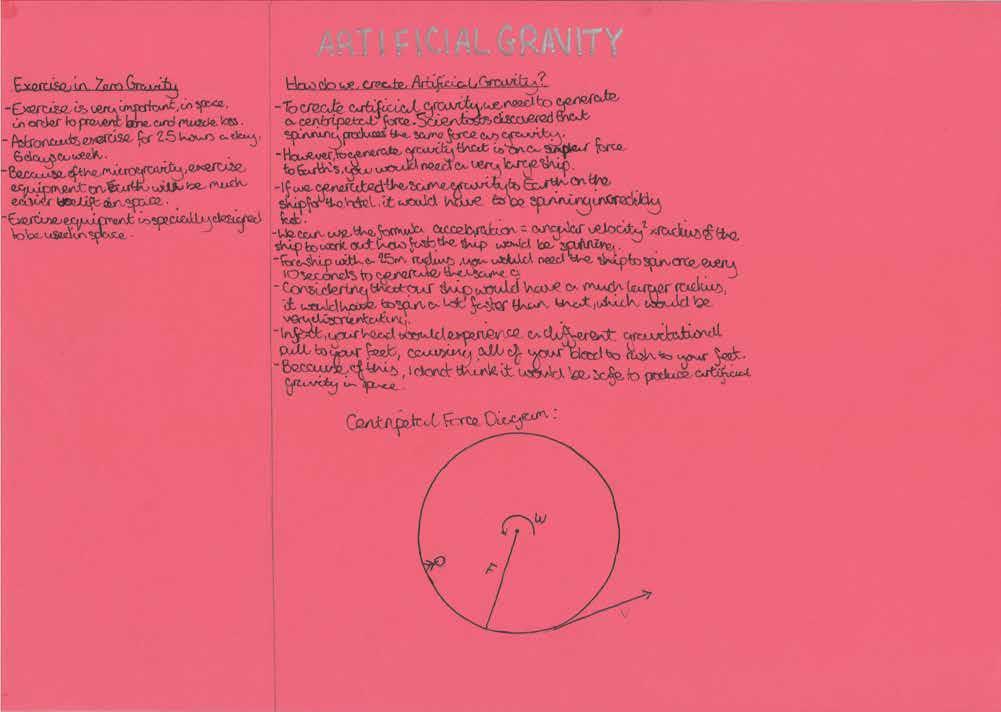 ARTIFICIAL GRAVITY
Exercise in Zero Gravity
-Exercise is very important, in space,
in order to prevent bone and muscle loss.
-Astronauts exercise for 2.5 hours a day,
6 days a week.
-Because of the microgravity, exercise
equipment on Earth will be much
easier to lift in space.
-Exercise equipment is specially designed
to be used in space.
How do we create Artificial Gravity?
-To create artificial gravity we need to generate
a centripetal force. Scientists discovered that
spinning produces the same force as gravity.
-However, to generate gravity that is on a similar force
to Earth's, you would need a very large ship.
-If we generated the same gravity to Earth on the
ship for the hotel, it would have to be spinning incredibly
fast.
-We can use the formula acceleration = angular velocity² x radius of the
ship to work out how fast the ship would be spinning.
-For a ship with a 25m radius, you would need the ship to spin once every
10 seconds to generate the same g
-Considering that our ship would have a much larger radius,
it would have to spin a lot faster than that, which would be
very disorientating.
-Infact, your head would experience a different gravitational
pull to your feet, causing all of your blood to rush to your feet.
-Because of this, I dont think it would be safe to produce artificial
gravity in space.
Centripetal Force Diagram:
W
F
V